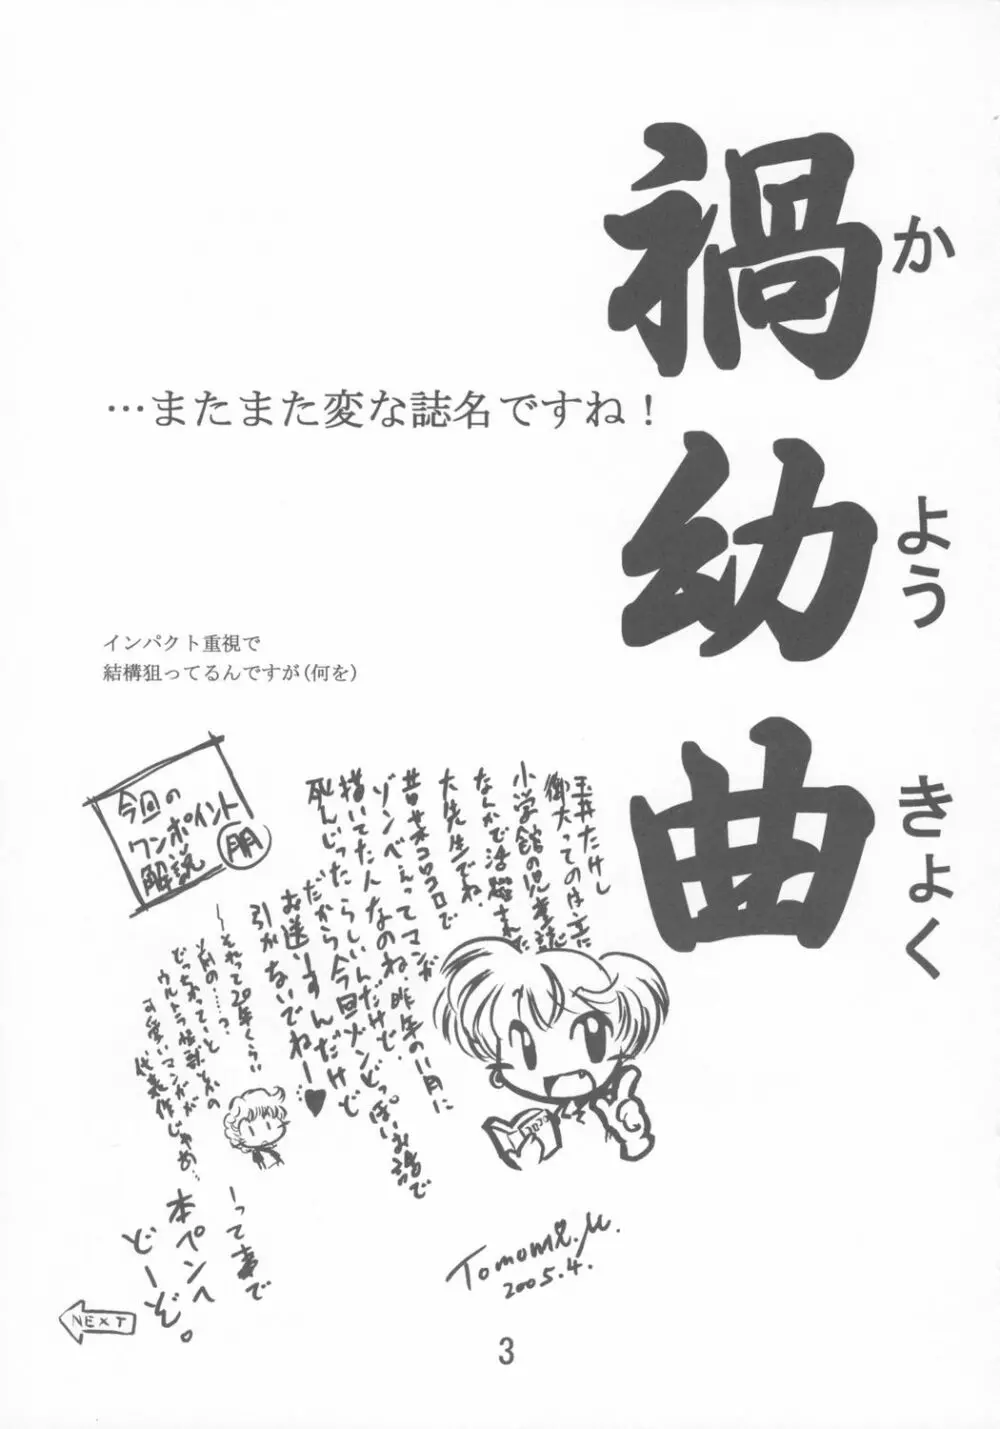 禍幼曲
かようきょく
…またまた変な誌名ですね!
インパクト重視で
結構狙ってるんですが(何を)
今回の
ワンポイント
解説
朋
玉井たけし
御大ってのは主に
小学館の児童誌
なんかで活躍された
大先生でね、
昔コロコロで
ゾンベぇってマンガ
描いてた人なのね、昨年の11月に
死んじったらしいんだけど、
だから今回ゾンどっぽいお話で
お送りすんだけど
引かないでねー♥
〜それって20年くらい
ソ月の……っ
どっちかっていと
ウルトラ怪獣とかの
可愛いマンガが
代表作じゃぁ…
ーって事で
本ペンへ
どーぞ。
コロコロ
Tomomi.M.
2005.4.
NEXT
3